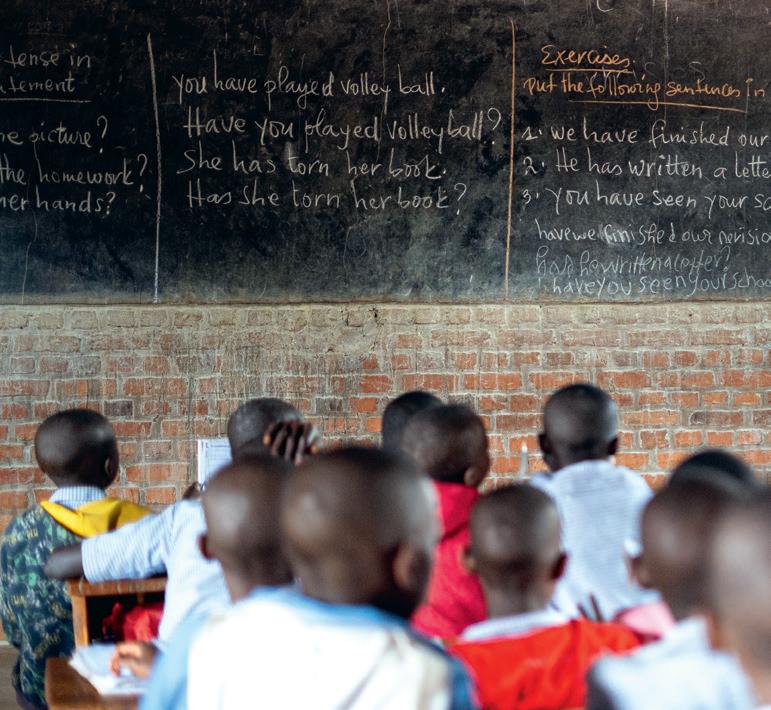 tense in
tement
e picture?
the homework?
her hands?
you have played volley ball.
Have you played volleyball?
She has torn her book.
Has she torn her book?
Exercises.
put the following sentences in
1. we have finished our
2. He has written a lette
3. you have seen your sc
have we finished our revisio
has he written a letter?
have you seen your schoo